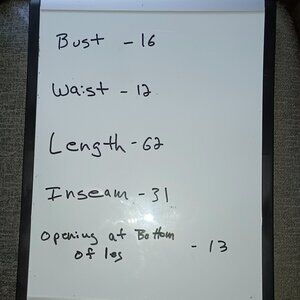 Bust - 16
Waist - 12
Length - 62
Inseam - 31
Opening at Bottom
of leg - 13